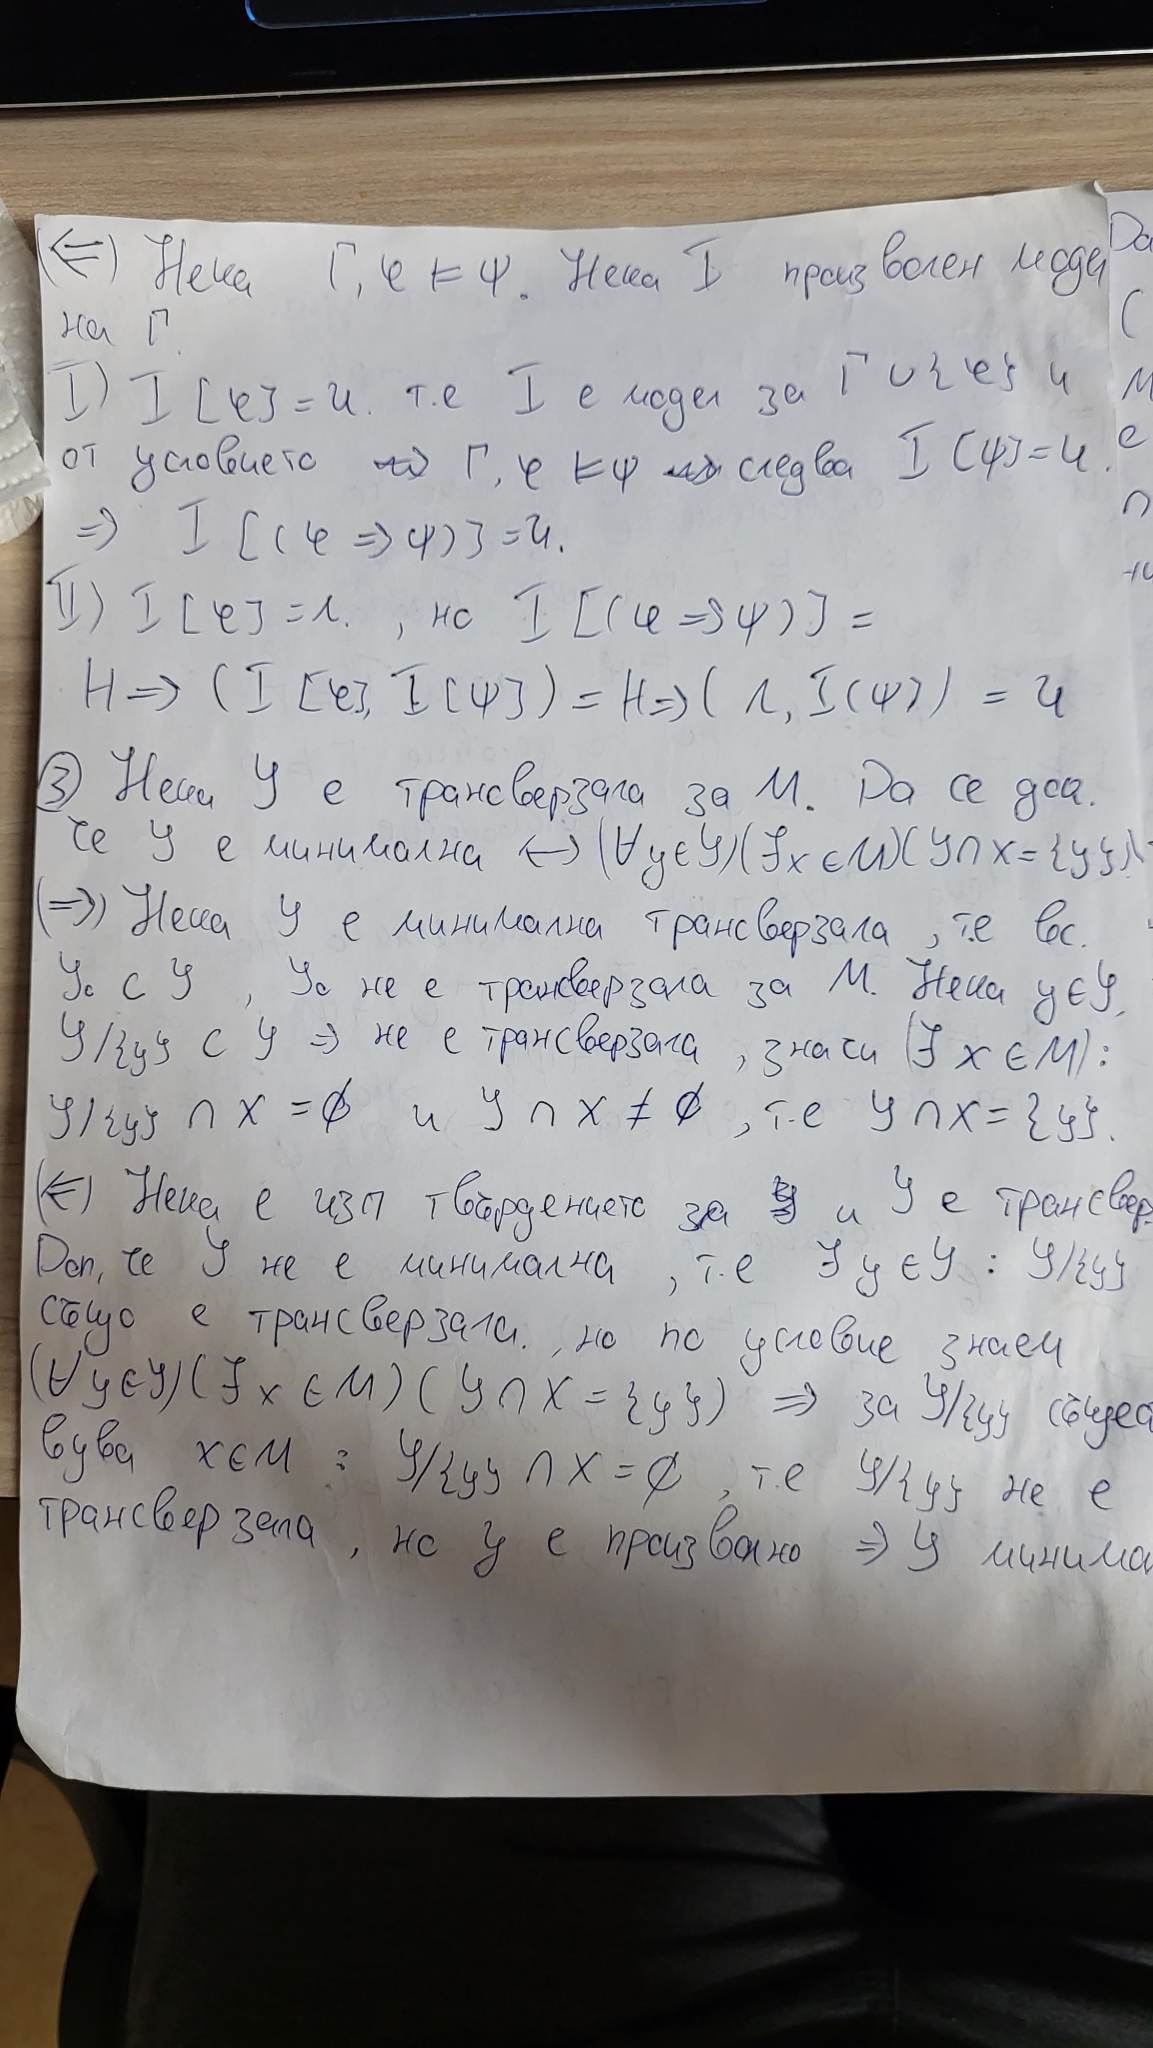 (⇐) Нека Γ, φ ⊨ ψ. Нека I произволен модел
на Γ.
I) I[φ] = и. т.е I е модел за Γ ∪ {φ} и
от условието Γ, φ ⊨ ψ следва I[ψ] = и.
⇒ I[(φ ⇒ ψ)] = и.
II) I[φ] = л. , но I[(φ ⇒ ψ)] =
H⇒ (I[φ], I[ψ]) = H⇒ (л, I(ψ)) = и
③ Нека Y е трансверзала за M. Да се док.
че Y е минимална ↔ (∀y∈Y)(∃x∈M)(Y∩X={y})
(⇒) Нека Y е минимална трансверзала, т.е вс.
Y₀ ⊂ Y , Y₀ не е трансверзала за M. Нека y∈Y,
Y/{y} ⊂ Y ⇒ не е трансверзала, значи (∃x∈M):
Y/{y} ∩ X = ∅ и Y ∩ X ≠ ∅, т.е Y∩X={y}.
(⇐) Нека е изп твърдението за и Y е трансвер.
Доп, че Y не е минимална, т.е ∃y∈Y : Y/{y}
също е трансверзала. , но по условие знаем
(∀y∈Y)(∃x∈M)(Y∩X={y}) ⇒ за Y/{y} същест
вува x∈M : Y/{y} ∩ X = ∅, т.е Y/{y} не е
трансверзала, но y е произволно ⇒ Y минимал
Да
(
м
е
п